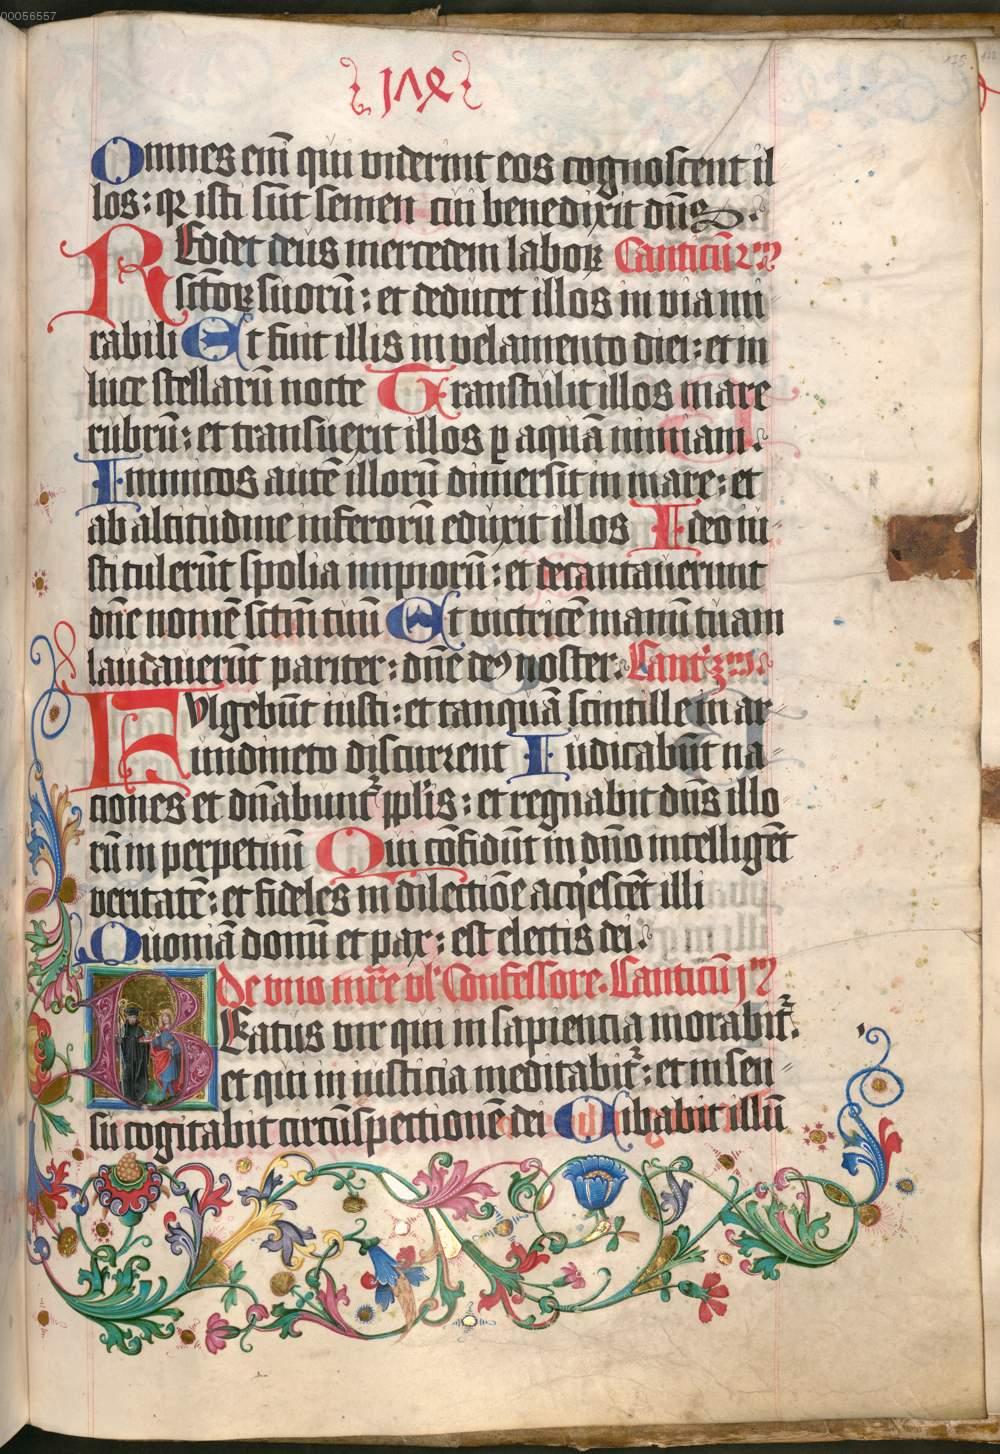 00056557
175
Omnes eni᷑ qui viderint eos cognoscent il
los: qꝛ isti su᷑t semen cui benedixit dn᷑s.
REddet deus mercedem laboꝝ Canticu᷑ 2ᵐ
sc᷑toꝝ suoru᷑: et deducet illos in via mi
rabili Et fuit illis in velamento diei: et in
luce stellaru᷑ nocte Transtulit illos mare
rubru᷑: et transuexit illos ꝑ aqua᷑ nimiam.
Inimicos aute᷑ illoru᷑ dimersit in mare: et
ab altitudine inferoru᷑ eduxit illos Ideo iu
sti tuleru᷑t spolia impioru᷑: et decantauerunt
dn᷑e nome᷑ sc᷑tm᷑ tuu᷑ Et victrice᷑ manu᷑ tuam
laudaueru᷑t pariter: dn᷑e deꝰ noster. Cant᷑ 3ᵐ
FVlgebu᷑t iusti: et tanqua᷑ scintille in ar
undineto discurrent Iudicabu᷑t na
ciones et dn᷑abunt᷑ ppl᷑is: et regnabit dn᷑s illo
ru᷑ in perpetuu᷑ Qui co᷑fidu᷑t in dn᷑o intellige᷑t
veritate᷑: et fideles in dilectio᷑e acq᷑esce᷑t illi
Quonia᷑ donu᷑ et pax: est electis dei.
De vno mr᷑e vl᷑ Confessore. Canticu᷑ jᵐ
BEatus vir qui in sapientia morabit᷑:
et qui in iusticia meditabit᷑: et in sen
su cogitabit circu᷑spectione᷑ dei Cibabit illu᷑